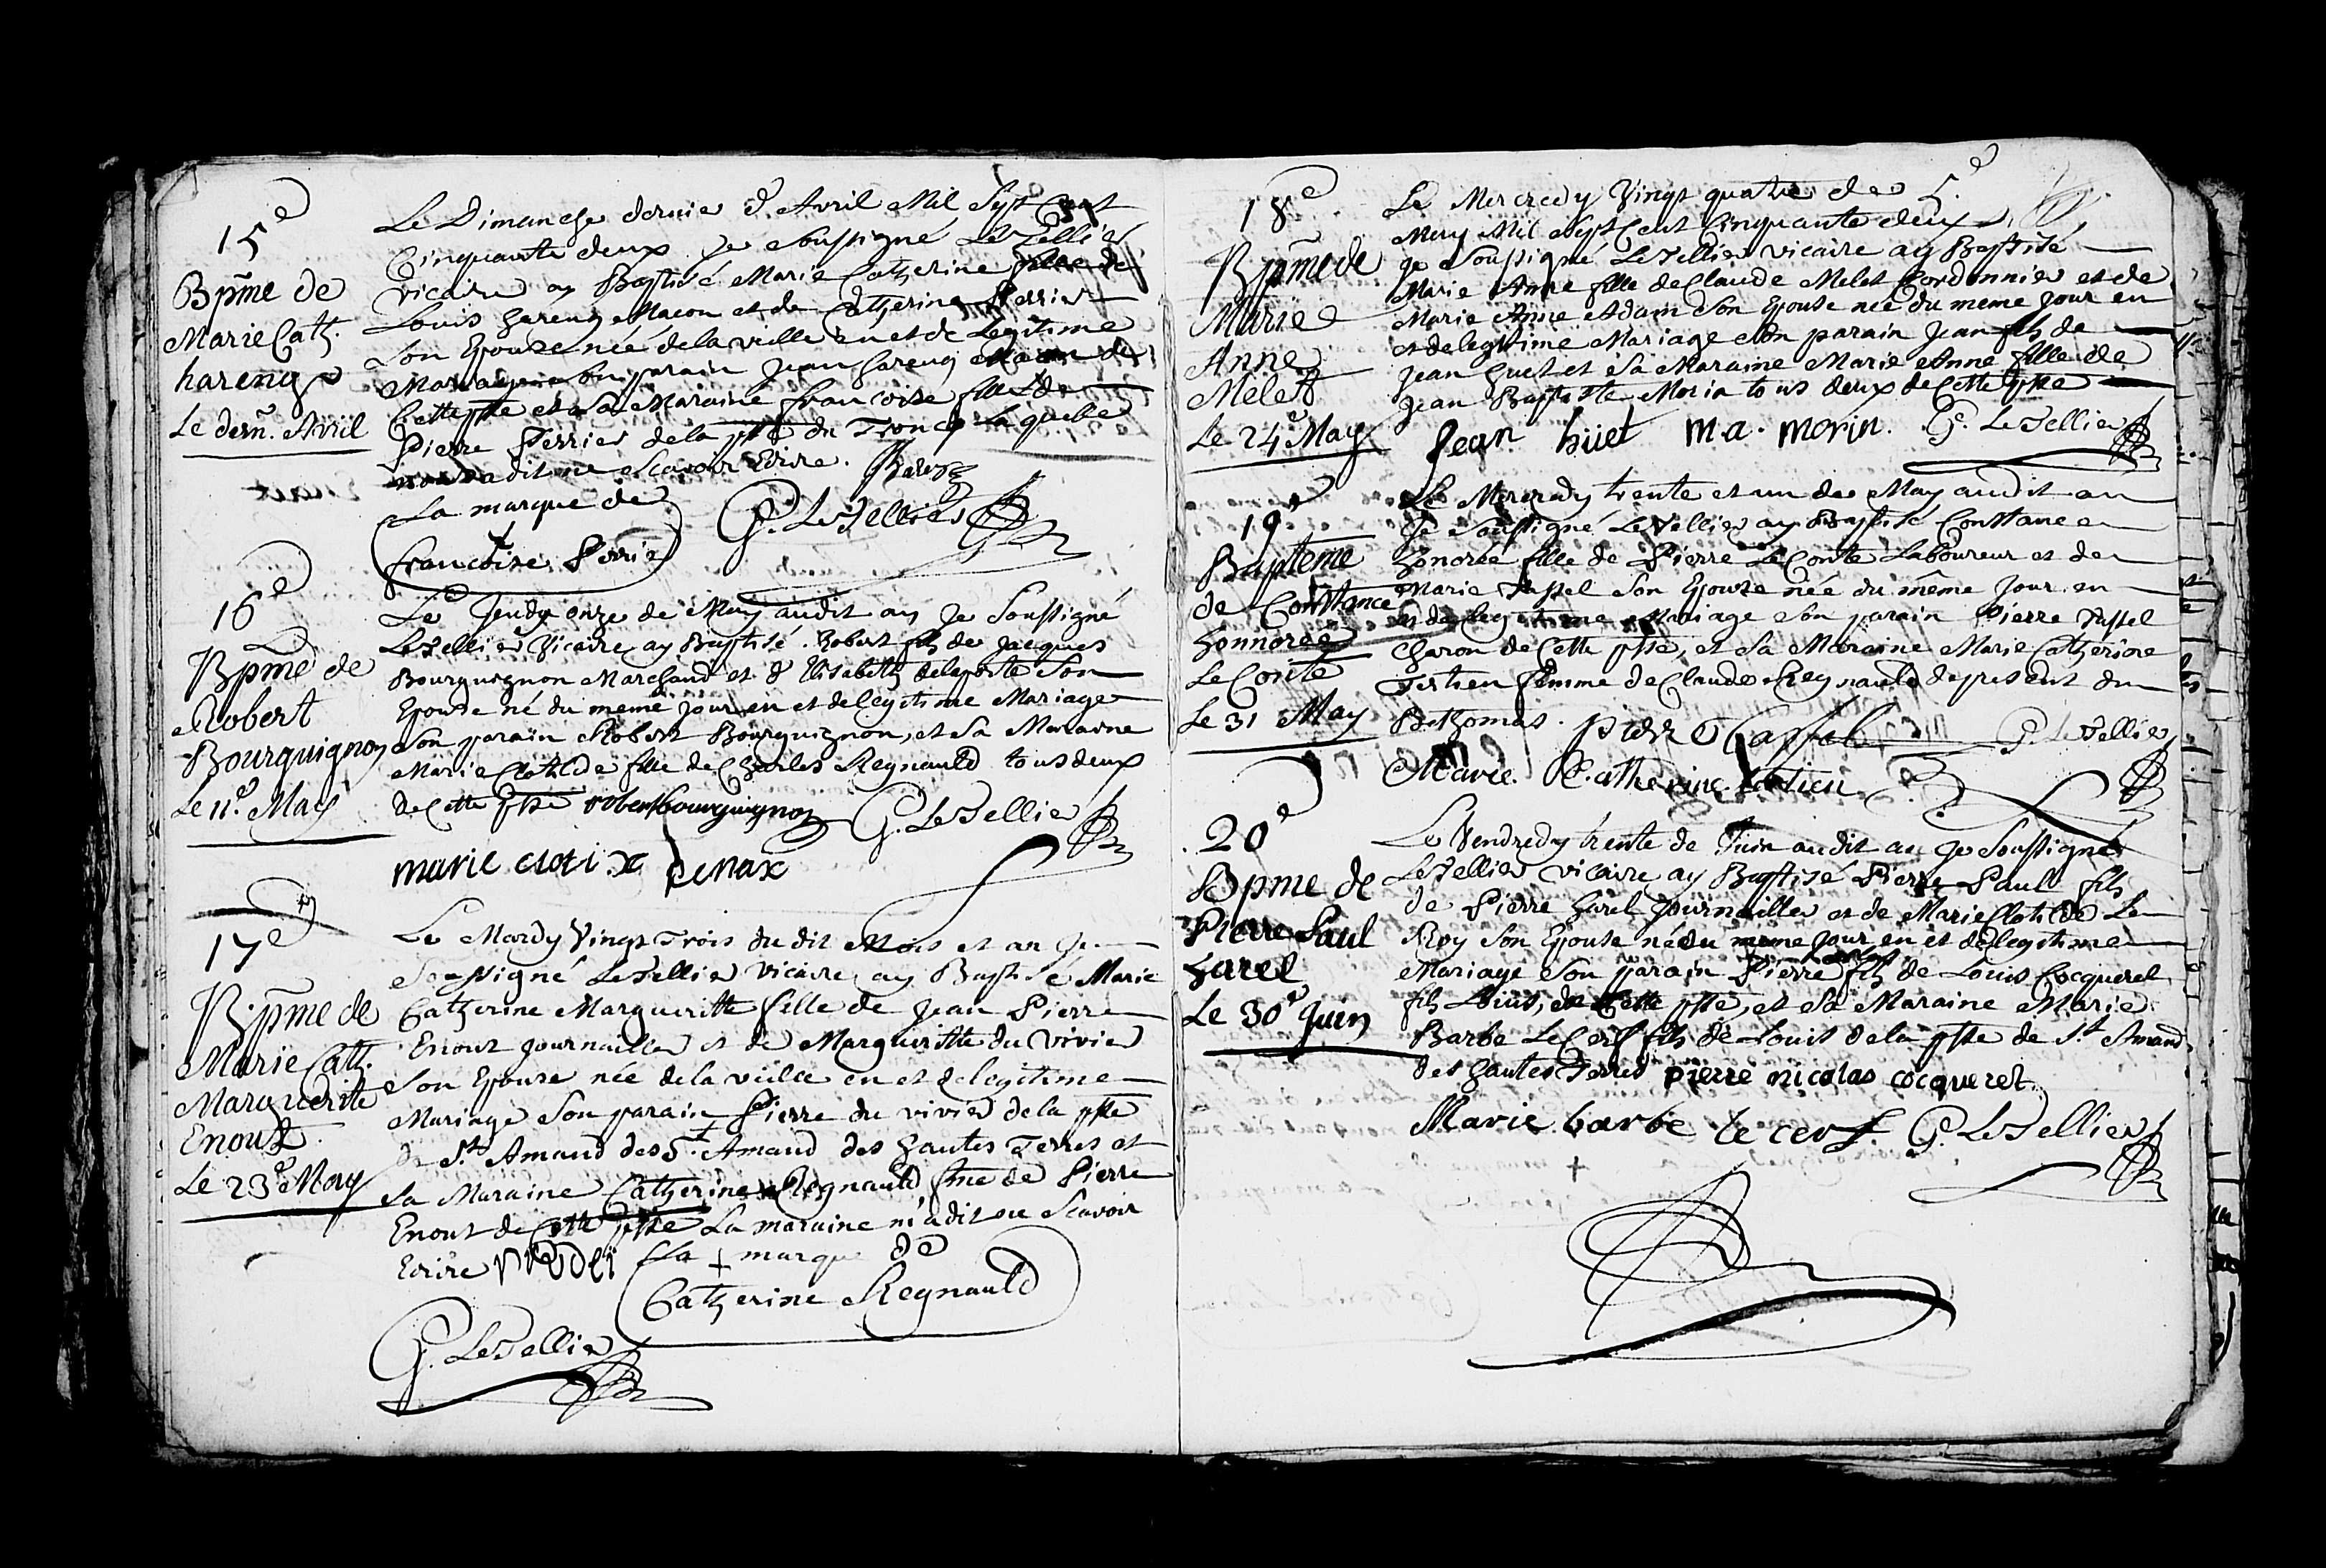 15e
Bpme de
Marie Cath.
hareng
Le dern. Avril
Le Dimanche dernier d'Avril Mil Sept Cent
Cinquante deux Je Soussigné LeTellier
vicaire ay Baptisé Marie Catherine fille de
Louis hareng Macon et de Catherine Perrier
Son Epouse née de la veille en et de Legitime
Mariage Son parain Jean hareng Macon de
Cette psse et Sa Maraine francoise fille de
Pierre Perrier de la psse du Troncq Laquelle
nous a dit ne Scavoir Ecrire.
La marque de
francoise Perrier
G. LeTellier
16e
Bpme de
Robert
Bourguignon
Le 11e May
Le Jeudy onze de May audit an Je Soussigné
LeTellier Vicaire ay Baptisé Robert fils de Jacques
Bourguignon Marchand et d'Elisabeth delaporte Son
Epouse né du meme jour en et de legitime Mariage
Son parain Robert Bourguignon, et Sa Maraine
Marie Clotilde fille de Charles Regnauld tous deux
de Cette psse robert bourguignon G. LeTellier
marie cloti renax
17e
Bpme de
Marie Cath.
Marguerite
Enout
Le 23e May
Le Mardy Vingt Trois du dit Mois et an Je
Soussigné LeTellier Vicaire ay Baptisé Marie
Catherine Margueritte fille de Jean Pierre
Enout journaillier et de Margueritte du Vivier
Son Epouse née de la veille en et de legitime
Mariage Son parain Pierre du vivier de la psse
de St. Amand des St. Amand des hautes Terres et
Sa Maraine Catherine Regnauld fme de Pierre
Enout de Cette psse La maraine m'a dit ne Scavoir
Ecrire La + marque de
Catherine Regnauld
G. LeTellier
18e
Bpme de
Marie
Anne
Melet
Le 24e May
Le Mercredy Vingt quatre de 5.e
May Mil Sept Cent Cinquante deux
Je Soussigné LeTellier vicaire ay Baptisé
Marie Anne fille de Claude Melet Cordonnier et de
Marie Anne Adam Son Epouse née du meme jour en
et de legitime Mariage Son parain Jean fils de
Jean huet et Sa Maraine Marie Anne fille de
Jean Baptiste Morin tous deux de Cette psse
Jean hüet m.a. morin. G. LeTellier
19e
Bapteme
de Constance
honnorée
Le Conte
Le 31 May
Le Mercredy trente et un de May audit an
Je Soussigné LeTellier ay Baptisé Constance
honorée fille de Pierre Le Conte Laboureur et de
Marie Tassel Son Epouse née du même jour en
et de legitime Mariage Son parain Pierre Tassel
Charon de Cette psse, et Sa Maraine Marie Catherine
Tertien femme de Claude Regnauld de present du
Bzthomas. pierre tassel G. LeTellier
Marie. Catherine. tertien
20e
Bpme de
Pierre Paul
harel
Le 30e Juin
Le Vendredy trente de Juin audit an Je Soussigné
LeTellier vicaire ay Baptisé Pierre Paul fils
de Pierre harel journaillier et de Marie Clotilde Le
Roy Son Epouse né du meme jour en et de legitime
Mariage Son parain Pierre fils de Louis Cocquerel
fils Louis, de Cette psse, et Sa Maraine Marie
Barbe Le Cerf fils de Louis de la psse de St. Amand
des hautes Terres pierre nicolas cocquerel
Marie barbe le cerf. G. LeTellier